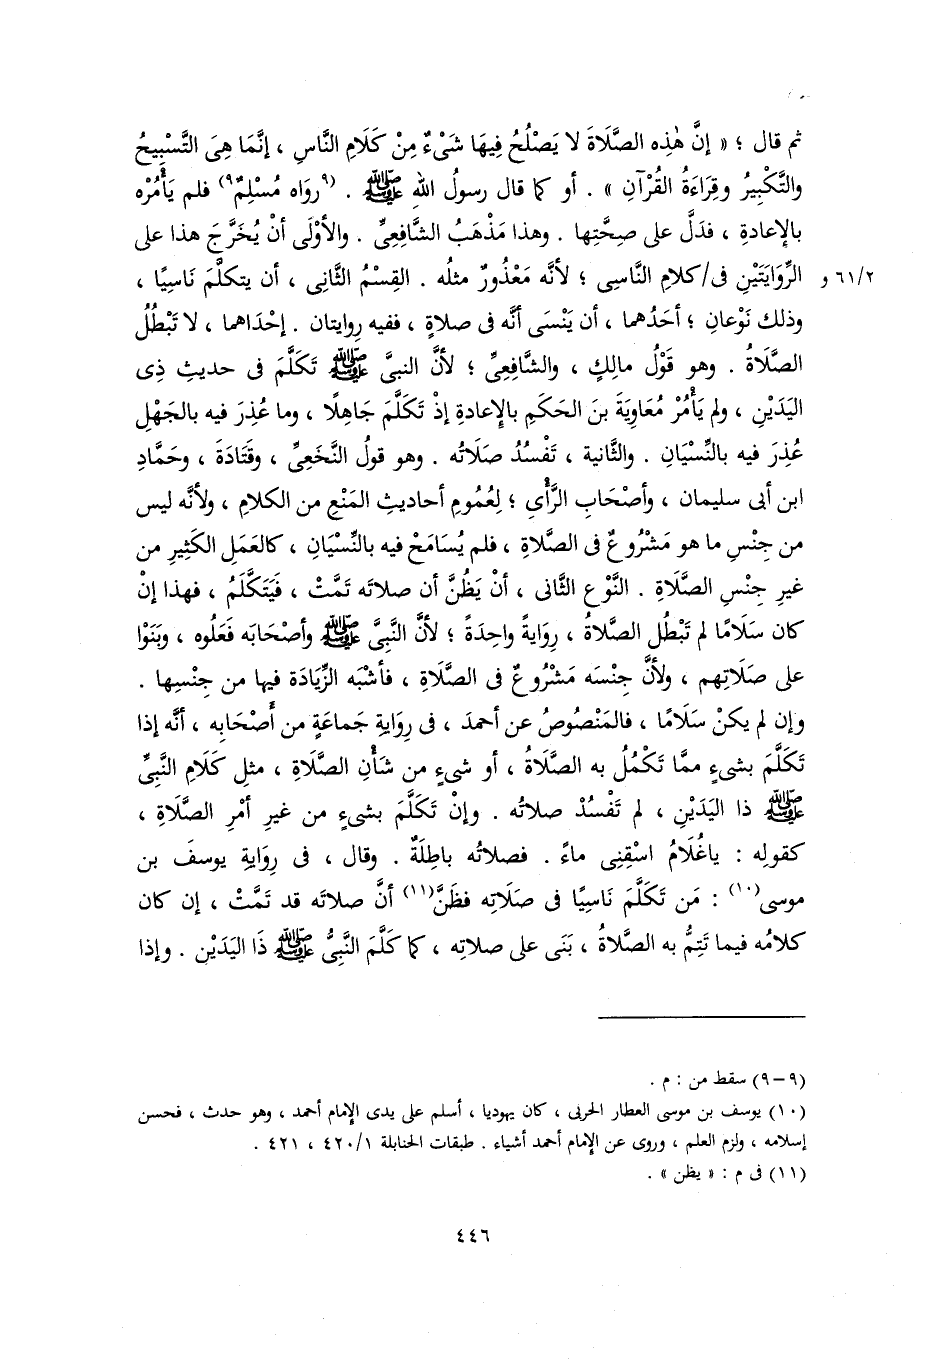 ثم قال ؛ « إنَّ هٰذِه الصَّلَاةَ لا يَصْلُحُ فِيهَا شَىْءٌ مِنْ كَلَامِ النَّاسِ ، إنَّمَا هِىَ التَّسْبِيحُ
والتَّكْبِيرُ وقِرَاءَةُ القُرْآنِ » . أو كما قال رسولُ اللهِ ﷺ . (٩رَوَاه مُسْلِمٌ٩) فلم يَأْمُرْه
بالإِعادةِ ، فدَلَّ على صِحَّتِها . وهذا مَذْهَبُ الشَّافِعِىِّ . والأَوْلَى أنْ يُخَرَّجَ هذا على
٦١/٢ و الرِّوَايَتَيْنِ فى/كلامِ النَّاسِى ؛ لأنَّه مَعْذُورٌ مثلُه . القِسْمُ الثَّانِى ، أن يتكلَّمَ نَاسِيًا ،
وذلك نَوْعانِ ؛ أحَدُهما ، أن يَنْسَى أنَّه فى صلاةٍ ، ففيه رِوايتان . إحْدَاهما ، لا تَبْطُلُ
الصَّلاةُ . وهو قَوْلُ مالِكٍ ، والشَّافِعِىِّ ؛ لأنَّ النبىَّ ﷺ تَكَلَّمَ فى حديثِ ذِى
اليَدَيْنِ ، ولم يَأْمُرْ مُعَاوِيَةَ بنَ الحَكَمِ بالإِعادةِ إذْ تَكَلَّمَ جَاهِلًا ، وما عُذِرَ فيه بالجَهْلِ
عُذِرَ فيه بالنِّسْيَانِ . والثَّانية ، تَفْسُدُ صَلَاتُه . وهو قولُ النَّخَعِىِّ ، وقَتَادَةَ ، وحَمَّادِ
ابن أبى سليمان ، وأصْحَابِ الرَّأْىِ ؛ لِعُمُومِ أحاديثِ المَنْعِ من الكلامِ ، ولأنَّه ليس
من جِنْسِ ما هو مَشْرُوعٌ فى الصَّلاةِ ، فلم يُسَامَحْ فيه بالنِّسْيَانِ ، كالعَمَلِ الكَثِيرِ من
غيرِ جِنْسِ الصَّلَاةِ . النَّوْع الثَّانى ، أنْ يَظُنَّ أن صلاتَه تَمَّتْ ، فَيَتَكَلَّمُ ، فهذا إنْ
كان سَلَامًا لم تَبْطُل الصَّلاةُ ، رِوَايةً واحِدَةً ؛ لأنَّ النَّبِىَّ ﷺ وأصْحَابَه فَعَلُوه ، وبَنَوْا
على صَلَاتِهم ، ولأنَّ جِنْسَه مَشْرُوعٌ فى الصَّلَاةِ ، فأشْبَه الزِّيَادَة فيها من جِنْسِها .
وإن لم يكنْ سَلَامًا ، فالمَنْصُوصُ عن أحمدَ ، فى رِوايةِ جَماعَةٍ من أصْحَابِه ، أنَّه إذا
تَكَلَّمَ بشىءٍ ممَّا تَكْمُلُ به الصَّلَاةُ ، أو شىءٍ من شَأْنِ الصَّلَاةِ ، مثلِ كَلَامِ النَّبِىِّ
ﷺ ذا اليَدَيْنِ ، لم تَفْسُدْ صلاتُه . وإنْ تَكَلَّمَ بشىءٍ من غيرِ أمْرِ الصَّلَاةِ ،
كقولِه : ياغُلَامُ اسْقِنِى ماءً . فصلاتُه باطِلَةٌ . وقال ، فى رِوَايةِ يوسفَ بن
موسى(١٠) : مَن تَكَلَّمَ نَاسِيًا فى صَلَاتِه فظَنَّ(١١) أنَّ صلاتَه قد تَمَّتْ ، إن كان
كلامُه فيما تَتِمُّ به الصَّلاةُ ، بَنَى على صلاتِه ، كما كَلَّمَ النَّبِىُّ ﷺ ذَا اليَدَيْنِ . وإذا
(٩-٩) سقط من : م .
(١٠) يوسف بن موسى العطار الحربى ، كان يهوديا ، أسلم على يدى الإمام أحمد ، وهو حدث ، فحسن
إسلامه ، ولزم العلم ، وروى عن الإمام أحمد أشياء . طبقات الحنابلة ٤٢٠/١ ، ٤٢١ .
(١١) فى م : « يظن » .
٤٤٦